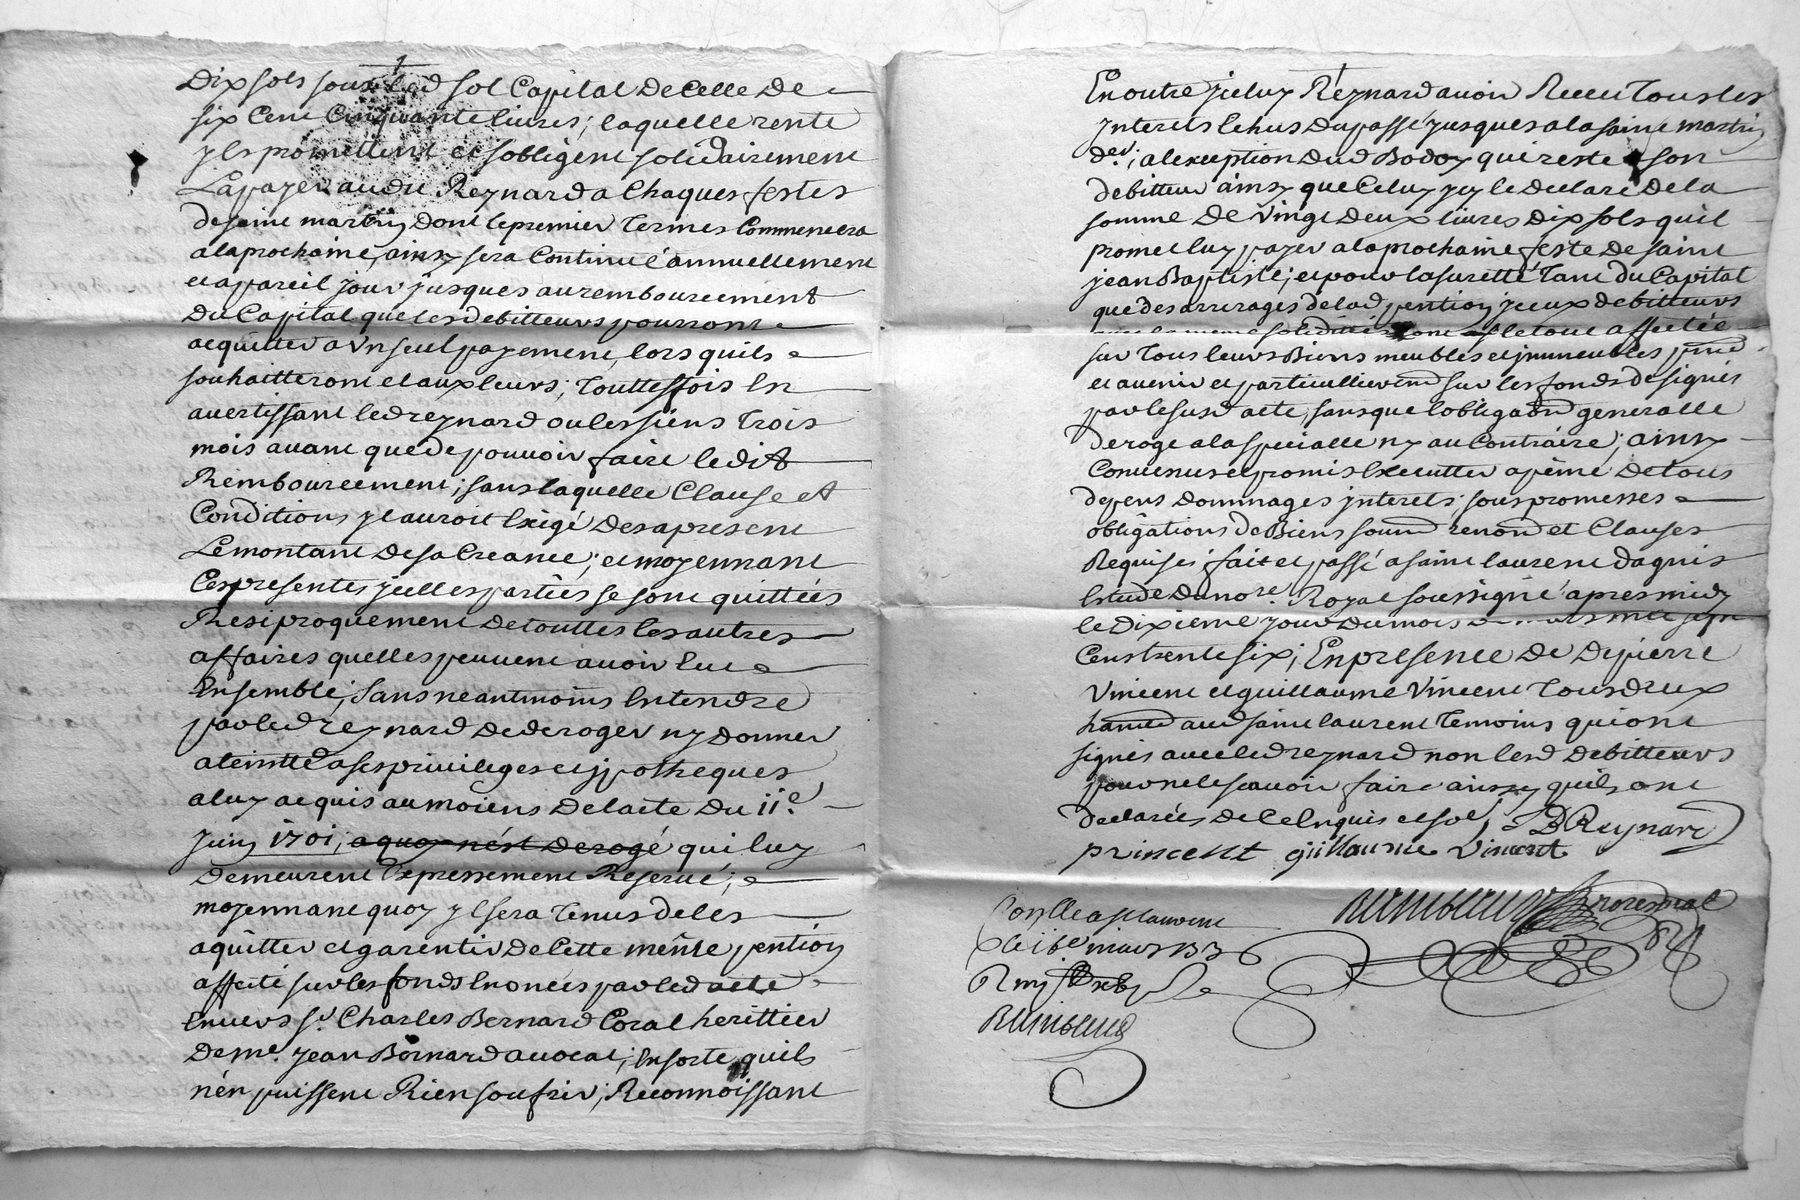 Dix sols sous led sol Capital De Celle De
six Cent Cinquante livres; laquelle rente
yls promettent et sobligent solidairement
La payer audit Reynard a Chaques festes
de saint martin Dont le premier Termes Commencera
a la prochaine, ainsy sera Continué annuellement
et a pareil jour jusques au remboursement
Du Capital que les debitteurs pourront
acquitter a Un seul payement, lors quils
souhaitteront et aux leurs; Touttesfois En
avertissant led reynard ou les siens Trois
mois avant que de pouvoir faire ledit
Remboursement; sans laquelle Clause et
Conditions yl auroit Exigé Des a present
Le montant De sa Creance; et moyennant
Ces presentes jcelles parties se sont quittées
Resiproquement De touttes les autres
affaires quelles peuvent avoir Eue
Ensemble; sans neantmoins Entendre
par led reynard De deroger ny Donner
ateintte a ses privileges et jpotheques
a luy acquis au moiens De lacte Du 11e
Juin 1701; a quoy nést Derogé qui luy
Demeurent Expressement Reservé;
moyennant quoy yl sera Tenus de les
aquitter et garentir De Cette même pention
affecté sur les fonds Enoncés par led acte
Envers sr. Charles Bernard Coral herittier
De me. jean Bernard avocat; En sorte quils
n'én puissent Rien soufrir; Reconnoissant
En outre jceluy Reynard avoir Receu Tous les
jnterets Echus Du passé jusques a la saint martin
der; a lexception Dud Bodoy qui reste son
debitteur ainsy que Celuy jcy le Declare De la
somme De vingt Deux livres Dix sols quil
promet luy payer a la prochaine feste De saint
jean Baptiste; et pour la suretté Tant Du Capital
que des arrerages de lad pention jceux debitteurs
avec la meme solidité ont le tout affectée
sur Tous leurs Biens meubles et jmmeubles pnts
et avenir et particullierent sur les fonds designés
par le susd acte, sans que lobligaon generalle
Deroge a la specialle ny au Contraire; ainsy
Convenus et promis Executter a peine De tous
depens Dommages jnterets sous promesses
obligations de Biens soum renon et Clauses
Requises fait et passé a saint laurent Dagnis
Estude Du nore. Royal soussigné apres midy
le Dixieme jour Du mois mars mil sept
Cens trente six; En presence De De pierre
Vincent et guillaume Vincent Tous Deux
habitts aud saint laurent Temoins qui ont
signés avec led reynard non lesd Debitteurs
pour ne le scavoir faire ainsy quils ont
declarés De Ce Enquis et sol; B Reynard
p vincent guillaume vincent
Conlle a st laurent
le 16e. mars 1736
R